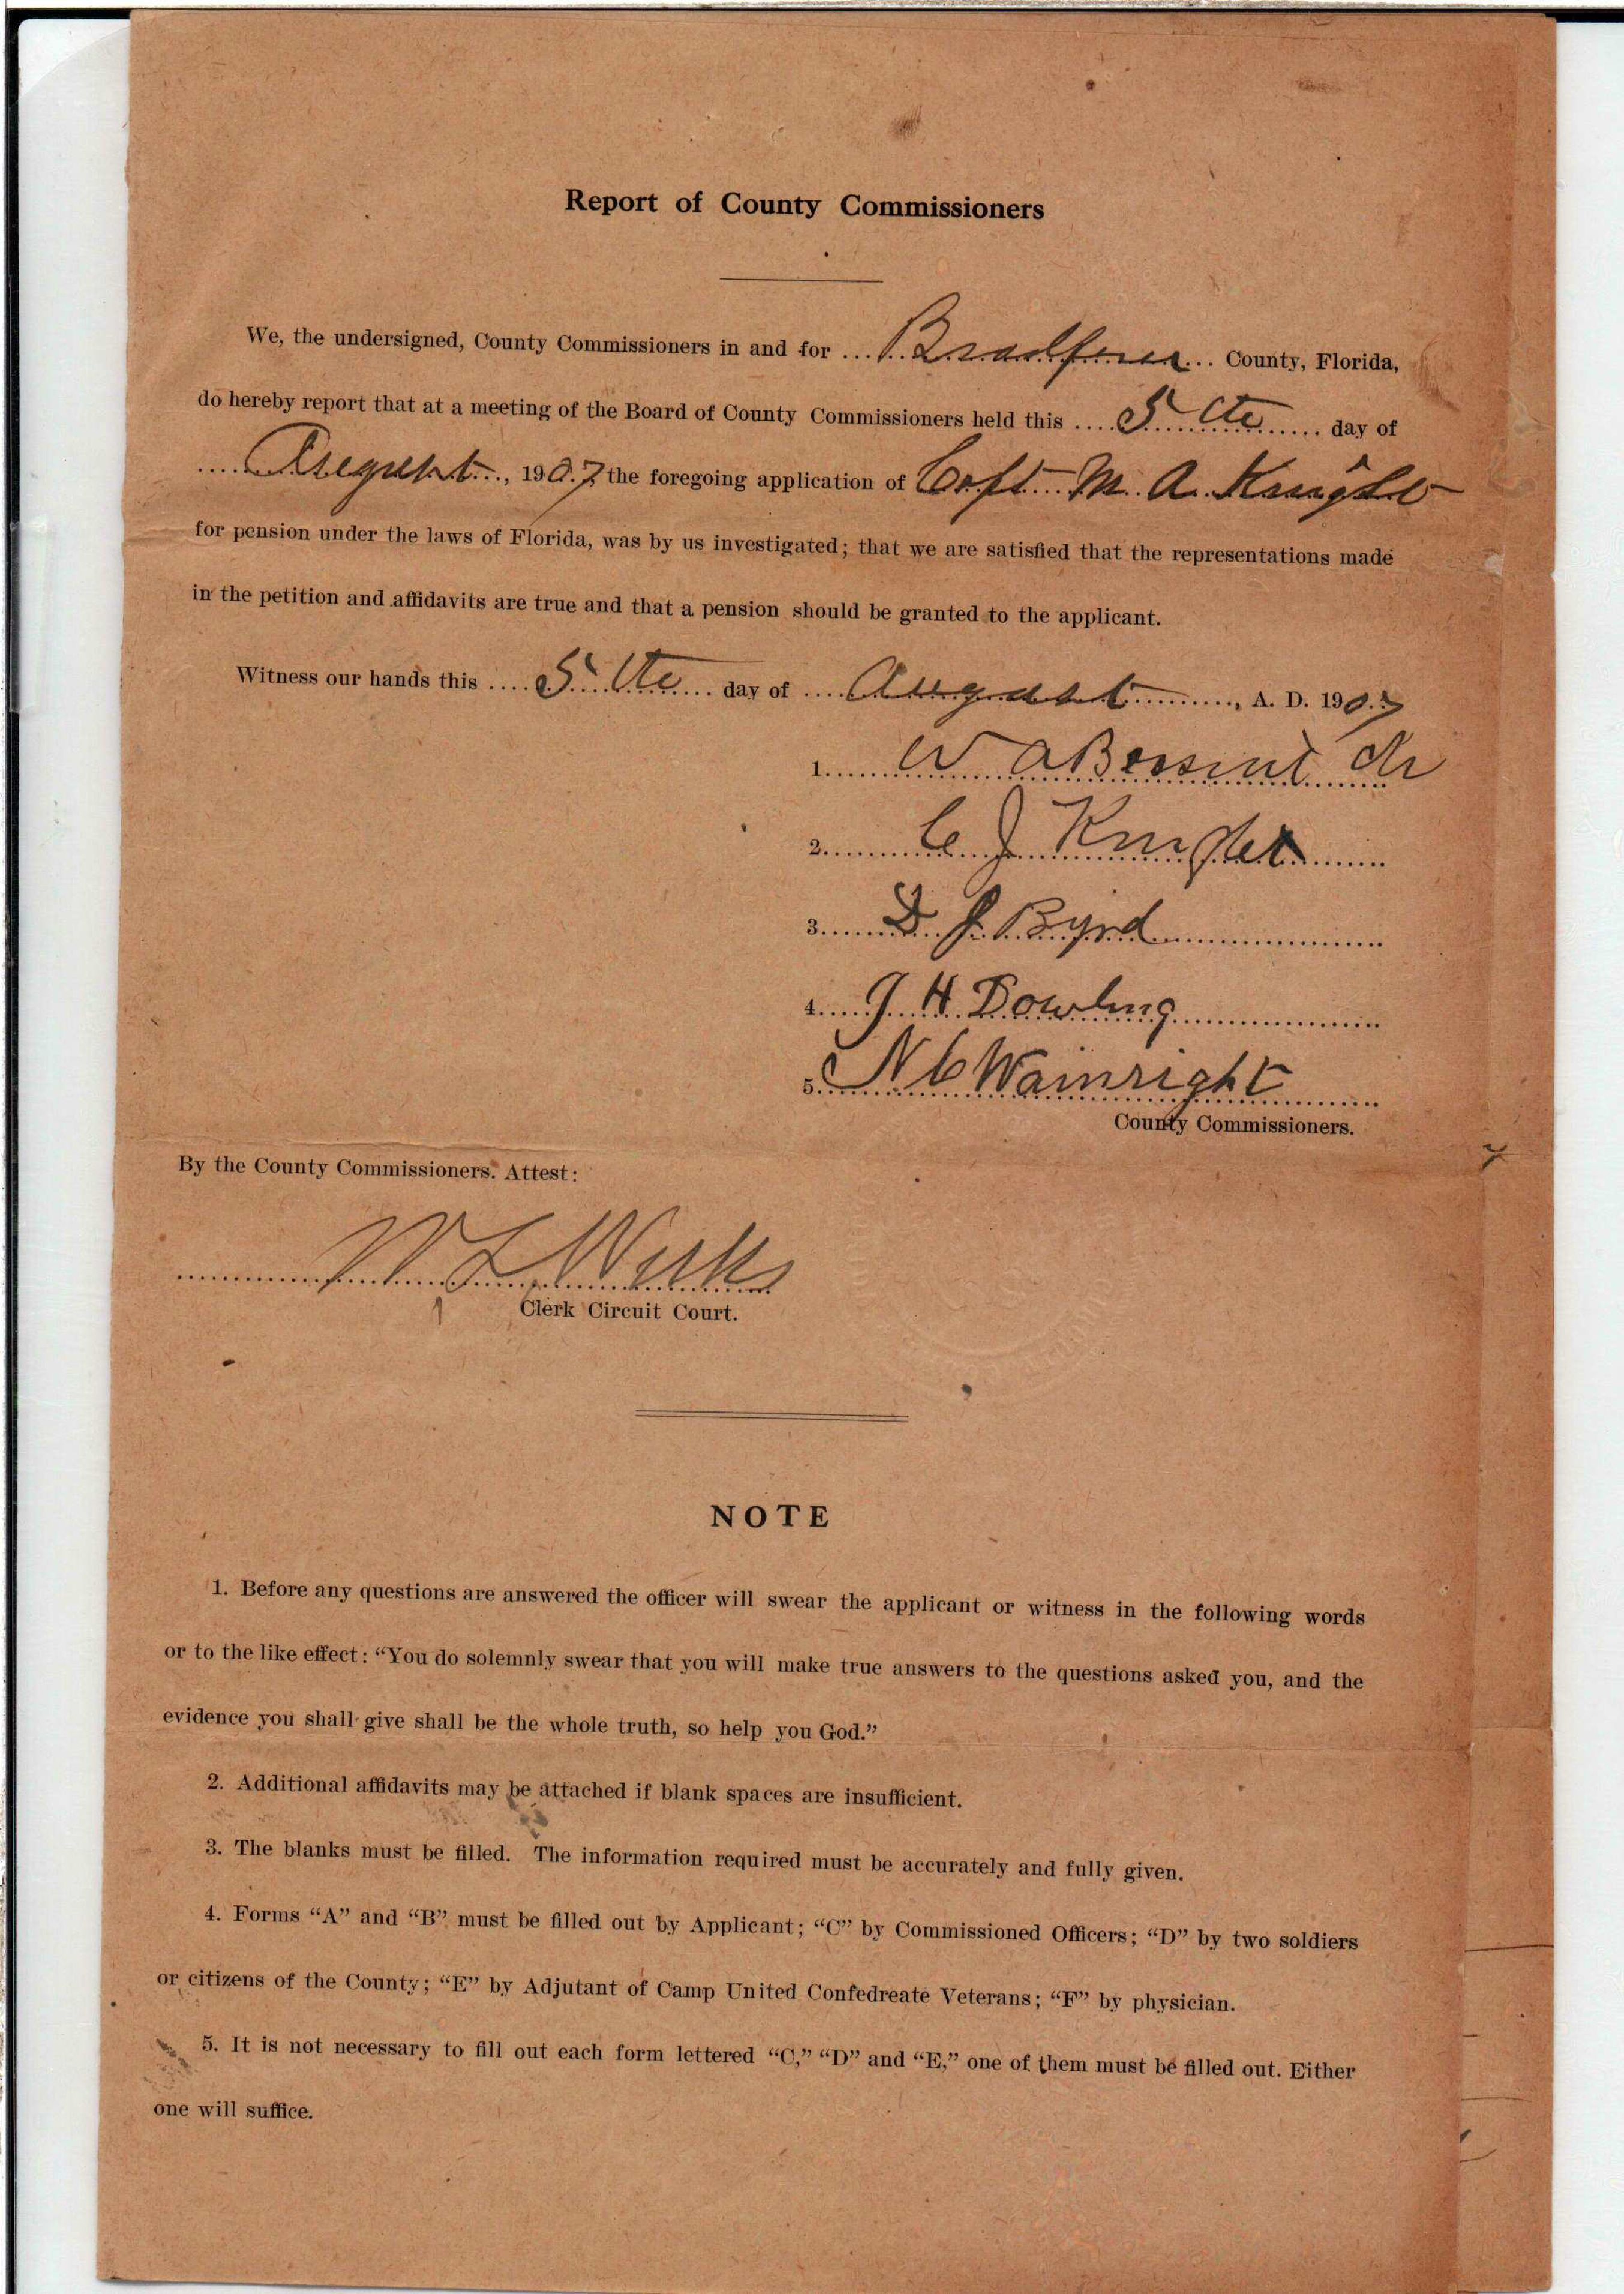 Report of County Commissioners
We, the undersigned, County Commissioners in and for ... Bradford ... County, Florida,
do hereby report that at a meeting of the Board of County Commissioners held this .... 5 th ...... day of
.... August ..., 1907 the foregoing application of Capt. M. A. Knight
for pension under the laws of Florida, was by us investigated; that we are satisfied that the representations made
in the petition and affidavits are true and that a pension should be granted to the applicant.
Witness our hands this .... 5 th .... day of .... August ........., A. D. 1907
1. W A Jr
2. C J Knight
3. D. J. Byrd
4. J. H. Dowling
5. N C Wainright
County Commissioners.
By the County Commissioners. Attest:
Clerk Circuit Court.
NOTE
1. Before any questions are answered the officer will swear the applicant or witness in the following words
or to the like effect: “You do solemnly swear that you will make true answers to the questions asked you, and the
evidence you shall give shall be the whole truth, so help you God.”
2. Additional affidavits may be attached if blank spaces are insufficient.
3. The blanks must be filled. The information required must be accurately and fully given.
4. Forms “A” and “B” must be filled out by Applicant; “C” by Commissioned Officers; “D” by two soldiers
or citizens of the County; “E” by Adjutant of Camp United Confedreate Veterans; “F” by physician.
5. It is not necessary to fill out each form lettered “C,” “D” and “E,” one of them must be filled out. Either
one will suffice.